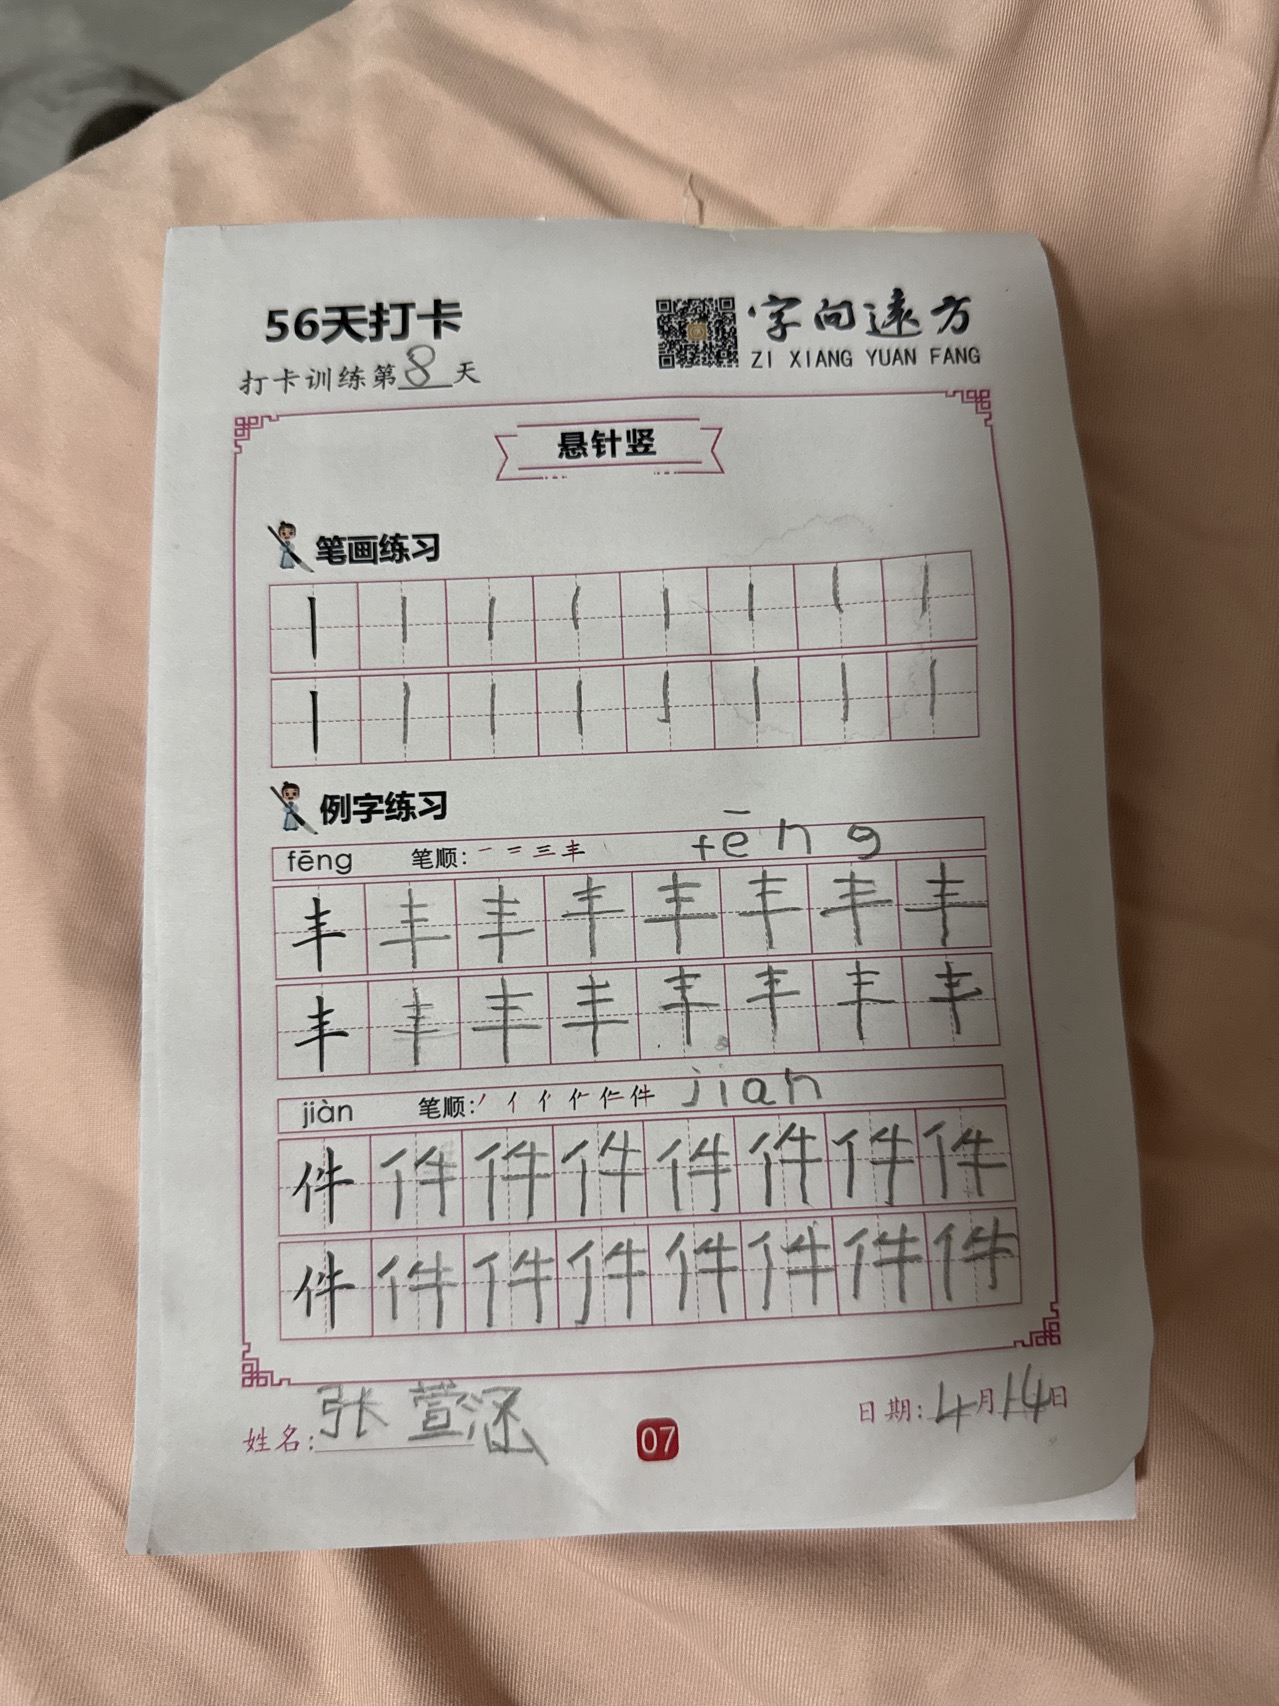 56天打卡
字向远方
ZI XIANG YUAN FANG
打卡训练第8天
悬针竖
笔画练习
例字练习
fēng 笔顺: 一 二 三 丰 fēng
丰 丰 丰 丰 丰 丰 丰 丰
丰 丰 丰 丰 丰 丰 丰 丰
jiàn 笔顺: 丿 亻 亻 仁 件 jian
件 件 件 件 件 件 件 件
件 件 件 件 件 件 件 件
姓名: 张萱涵
07
日期: 4月14日